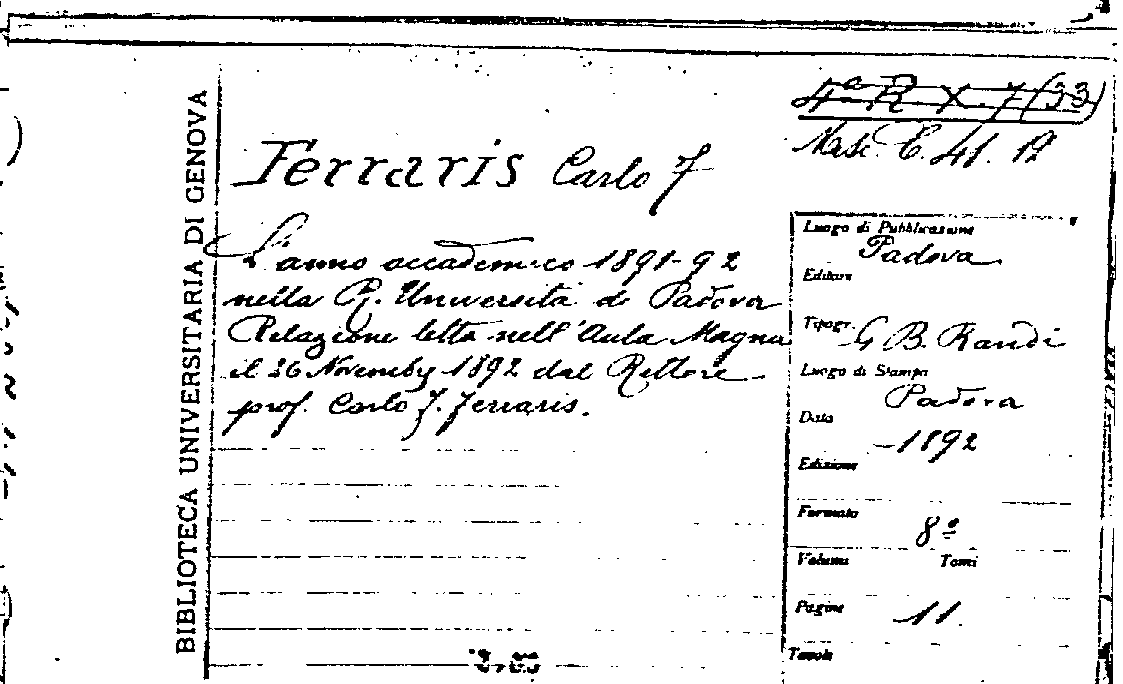 4ª R X. 7 (33)
Misc. E. 41. 12
BIBLIOTECA UNIVERSITARIA DI GENOVA
Ferraris Carlo F
L'anno accademico 1891-92
nella R. Università di Padova
Relazione letta nell'Aula Magna
il 26 Novembre 1892 dal Rettore
prof. Carlo F. Ferraris.
Luogo di Pubblicazione
Padova
Editore
Tipogr. G B. Randi
Luogo di Stampa
Padova
Data
1892
Edizione
Formato
8º
Volumi Tomi
Pagine 11.
Tavole